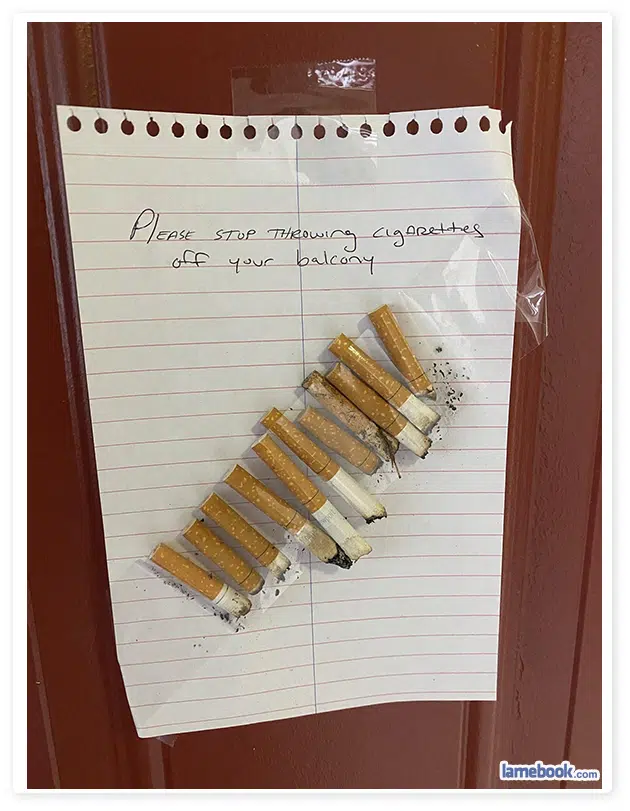 Please stop throwing cigarettes
off your balcony
lamebook.com